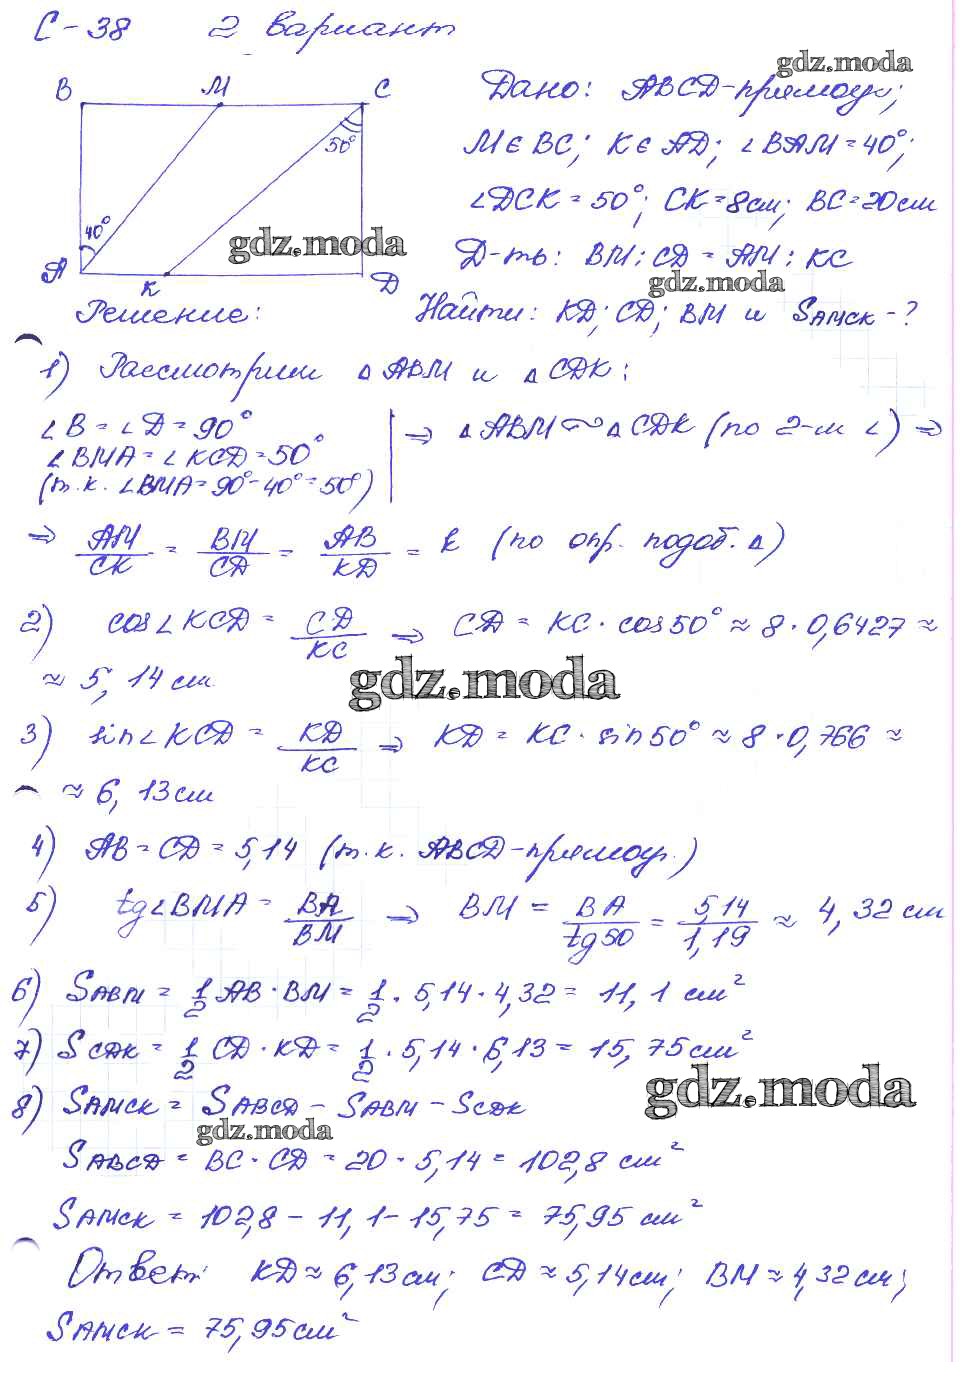 С-38 2 вариант
gdz.moda
B M C
50°
40°
A K D
gdz.moda
Дано: ABCD-прямоуг;
M ∈ BC; K ∈ AD; ∠BAM = 40°;
∠DCK = 50°; CK = 8см; BC = 20см
Д-ть: BM : CD = AM : KC
gdz.moda
Решение: Найти: KD; CD; BM и SAMCK - ?
1) Рассмотрим △ABM и △CDK:
∠B = ∠D = 90°
∠BMA = ∠KCD = 50°
(т.к. ∠BMA = 90° - 40° = 50°)
⇒ △ABM ∼ △CDK (по 2-м ∠) ⇒
⇒ AM/CK = BM/CD = AB/KD = k (по опр. подоб. △)
2) cos∠KCD = CD/KC ⇒ CD = KC · cos50° ≈ 8 · 0,6427 ≈
≈ 5,14см
gdz.moda
3) sin∠KCD = KD/KC ⇒ KD = KC · sin50° ≈ 8 · 0,766 ≈
≈ 6,13см
4) AB = CD = 5,14 (т.к. ABCD-прямоуг.)
5) tg∠BMA = BA/BM ⇒ BM = BA/tg50 = 5,14/1,19 ≈ 4,32см
6) SABM = 1/2 AB · BM = 1/2 · 5,14 · 4,32 = 11,1 см²
7) SCDK = 1/2 CD · KD = 1/2 · 5,14 · 6,13 = 15,75см²
8) SAMCK = SABCD - SABM - SCDK
gdz.moda
gdz.moda
SABCD = BC · CD = 20 · 5,14 = 102,8 см²
SAMCK = 102,8 - 11,1 - 15,75 = 75,95 см²
Ответ: KD ≈ 6,13см; CD ≈ 5,14см; BM ≈ 4,32см;
SAMCK = 75,95см²